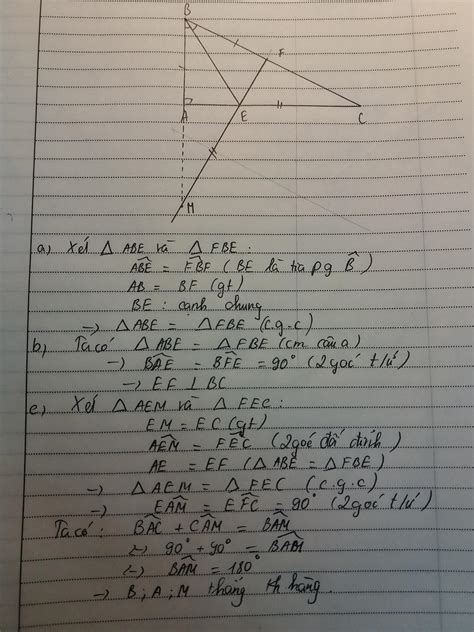 B
F
A
E
C
M
a) Xét △ ABE và △ FBE :
ABE = FBE ( BE là tia p.g B )
AB = BF (gt)
BE : cạnh chung
→ △ ABE = △ FBE (c.g.c)
b) Ta có △ ABE = △ FBE (cm câu a)
→ BAE = BFE = 90° (2 góc t/ứ)
→ EF ⊥ BC
c) Xét △ AEM và △ FEC :
EM = EC (gt)
AEM = FEC (2 góc đđ đỉnh)
AE = EF (△ ABE = △ FBE)
→ △ AEM = △ FEC (c.g.c)
→ EAM = EFC = 90° (2 góc t/ứ)
Ta có : BAC + CAM = BAM
90° + 90° = BAM
BAM = 180°
→ B ; A ; M thẳng hàng.